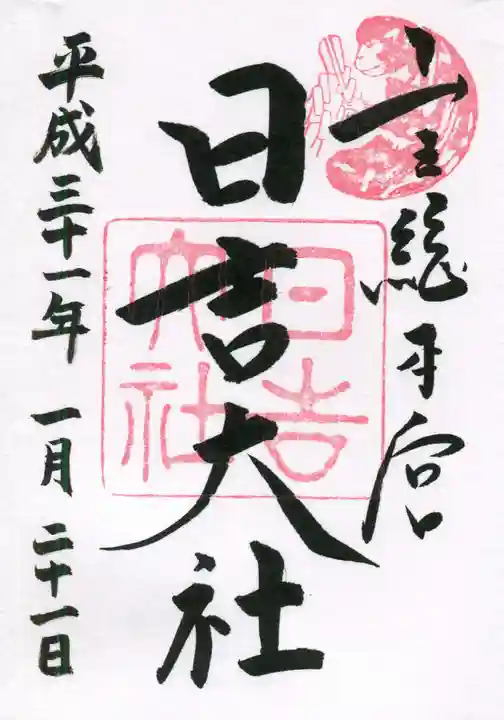 山王総本宮
日吉大社
平成三十一年 一月 二十一日
日吉
大社